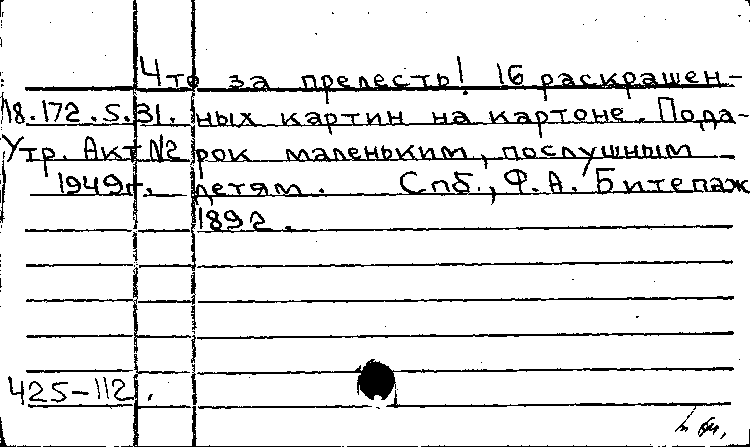 Что за прелесть! 16 раскрашен-
18.172.5.31. ных картин на картоне. Пода-
Утр. Акт №2 рок маленьким, послушным
1949г. детям. Спб., Ф.А. Битепаж
1892.
425-112.